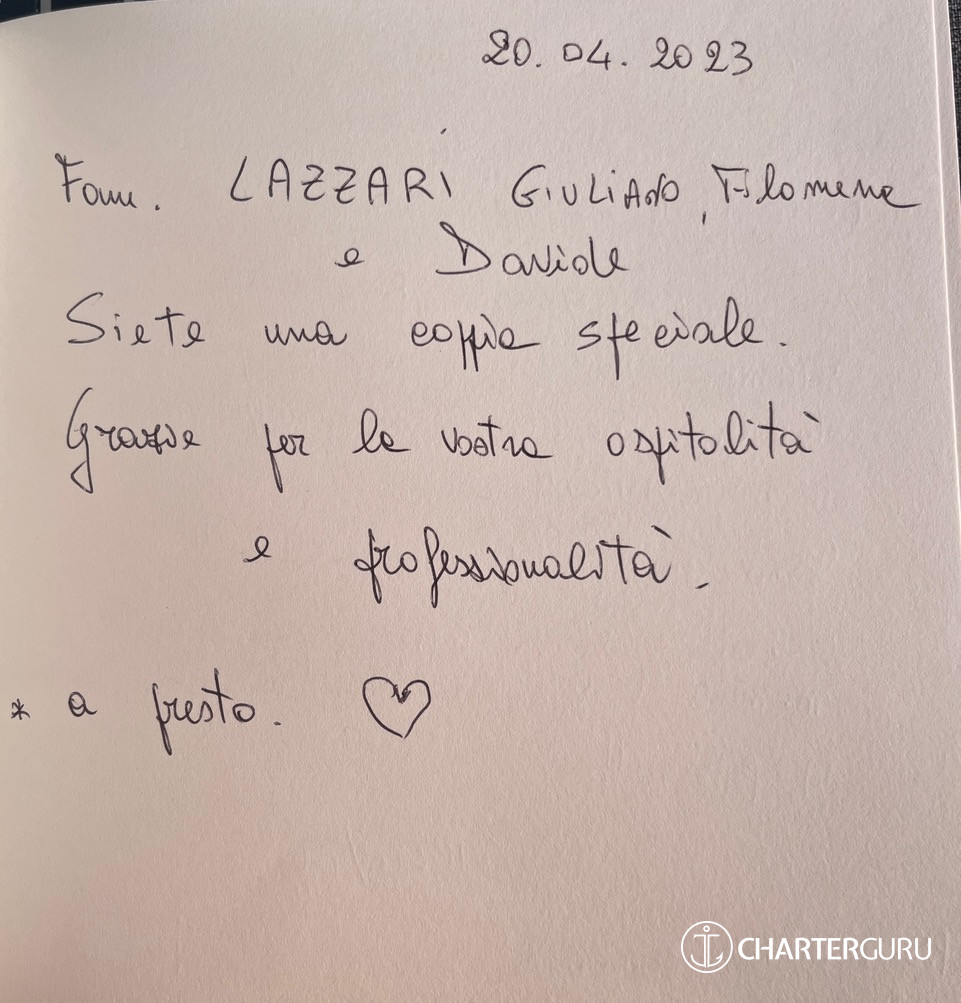 20.04.2023
Fam. LAZZARI GIULIANO, Filomena
e Davide
Siete una coppia speciale.
Grazie per la vostra ospitalità
e professionalità.
* a presto. ♡
CHARTERGURU